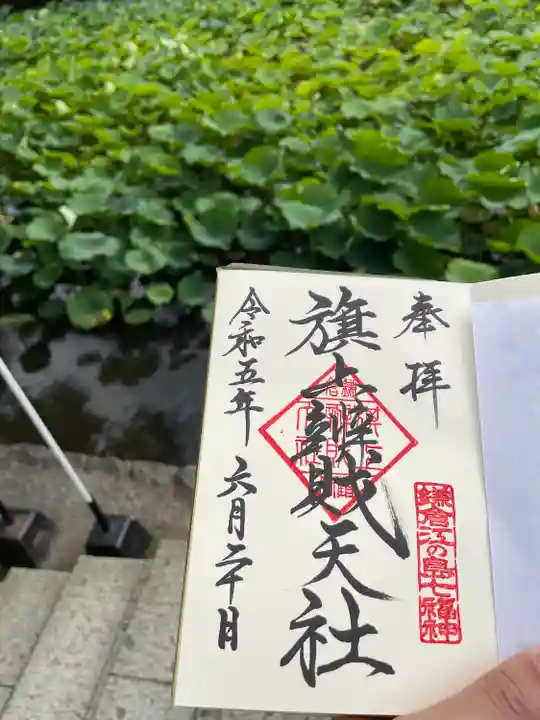 奉拝
鎌倉江の島七福神
旗上辨財天社
令和五年 六月二十日